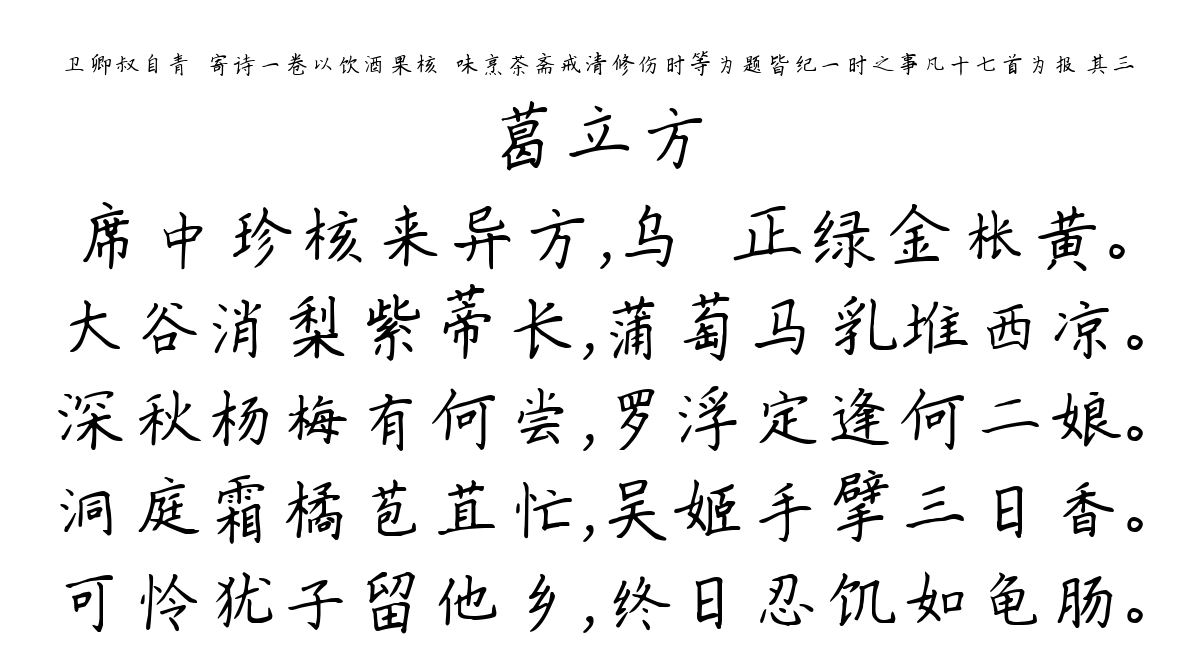 卫卿叔自青 寄诗一卷以饮酒果核 味烹茶斋戒清修伤时等为题皆纪一时之事凡十七首为报 其三
葛立方
席中珍核来异方,乌 正绿金枨黄。
大谷消梨紫蒂长,蒲萄马乳堆西凉。
深秋杨梅有何尝,罗浮定逢何二娘。
洞庭霜橘苞苴忙,吴姬手擘三日香。
可怜犹子留他乡,终日忍饥如龟肠。